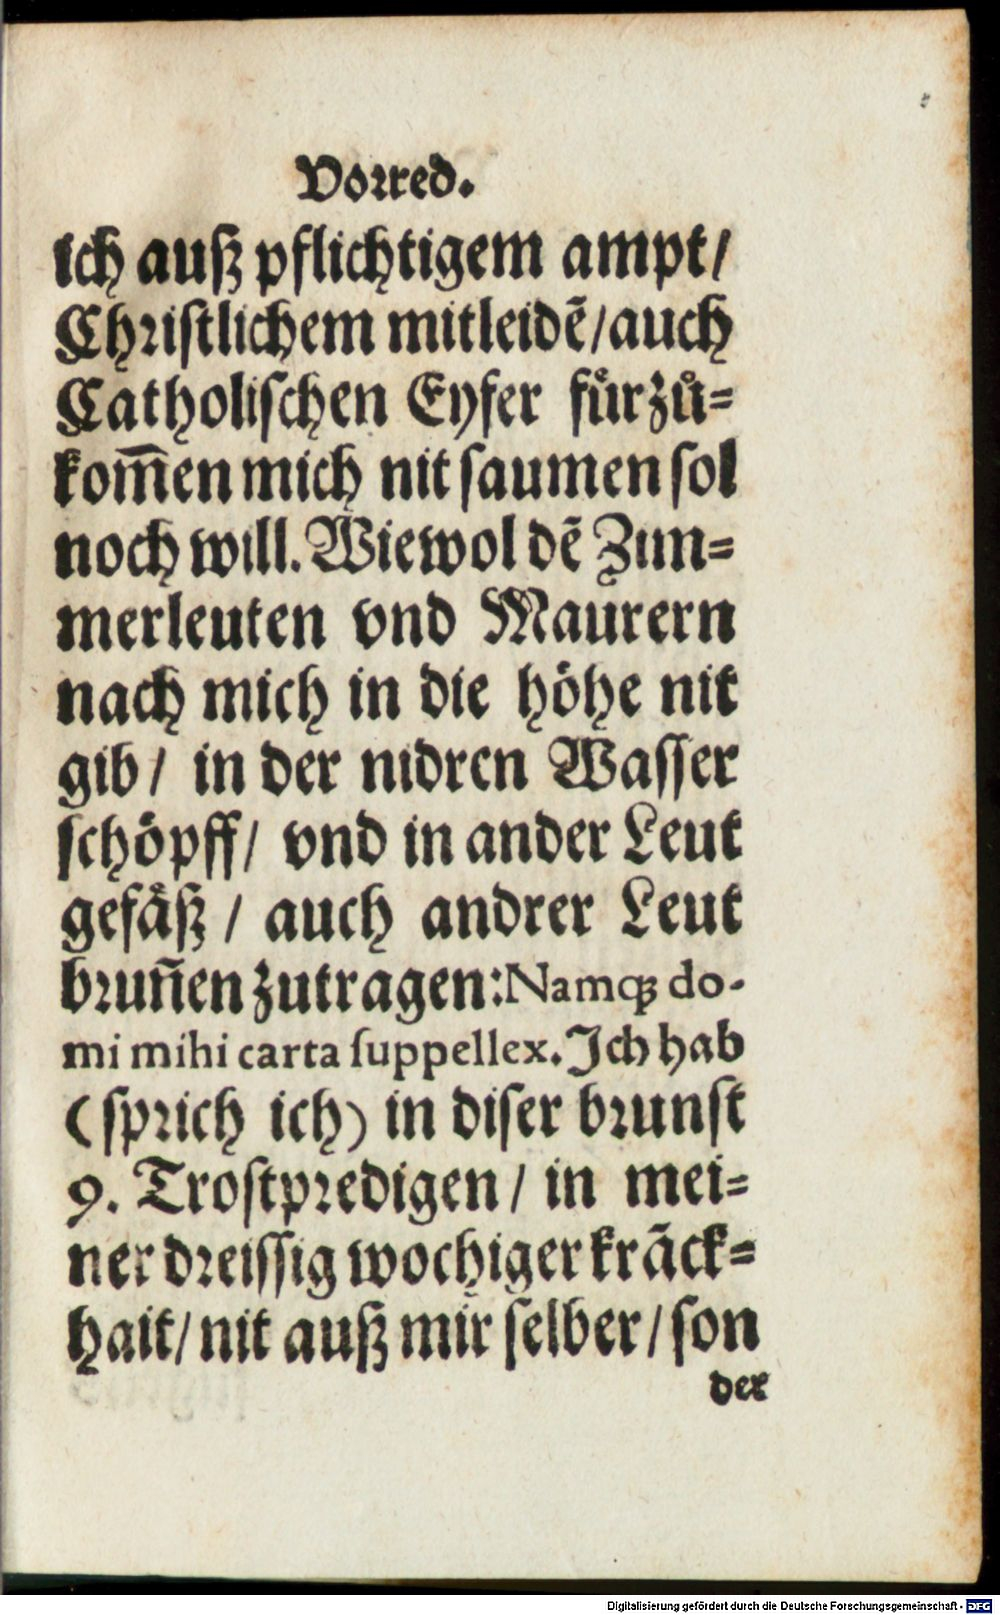 Vorred.
ich auß pflichtigem ampt/
Christlichem mitleidẽ/auch
Catholischen Eyfer fürzů-
kom̃en mich nit saumen sol
noch will. Wiewol dẽ Zim-
merleuten vnd Maurern
nach mich in die höhe nit
gib/ in der nidren Wasser
schöpff/ vnd in ander Leut
gefäß/ auch andrer Leut
brun̄en zutragen: Namq; do-
mi mihi carta suppellex. Ich hab
(sprich ich) in diser brunst
9. Trostpredigen/ in mei-
ner dreissig wochiger kräck-
hait/ nit auß mir selber/ son
der
Digitalisierung gefördert durch die Deutsche Forschungsgemeinschaft - DFG